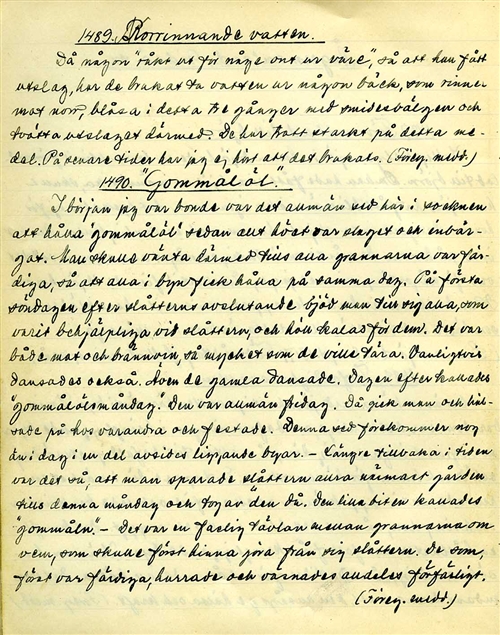 1489. Norrinnande vatten.
Då någon "råkt ut för någe ont ur väre", så att han fått
utslag, har de brukat ta vatten ur någon bäck, som rinner
mot norr, blåsa i detta tre gånger med smidesbälgen och
tvätta utslaget därmed. De har trott starkt på detta me-
del. På senare tider har jag ej hört att det brukats. (Föreg. medd.)
1490. "Gommålöl."
I början jag var bonde var det allmän sed här i socknen
att hålla "gommålöl" sedan allt höet var slaget och inbär-
gat. Man skulle vänta därmed tills alla grannarna var fär-
diga, så att alla i byn fick hålla på samma dag. På första
söndagen efter slåtterns avslutande bjöd man till sig alla, som
varit behjälpliga vid slåttern, och höll kalas för dem. Det var
både mat och brännvin, så mycket som de ville tära. Vanligtvis
dansades också. Även de gamla dansade. Dagen efter kallades
"gommålölsmåndag". Den var allmän fridag. Då gick man och häl-
sade på hos varandra och festade. Denna sed förekommer nog
än i dag i en del avsides liggande byar. – Längre tillbaka i tiden
var det så, att man sparade slåttern allra närmast gården
tills denna måndag och tog av den då. Den lilla biten kallades
"gommåln". – Det var en faslig tävlan mellan grannarna om
vem, som skulle först hinna göra från sig slåttern. De som
först var färdiga, hurrade och väsnades alldeles förfärligt.
(Föreg. medd.)